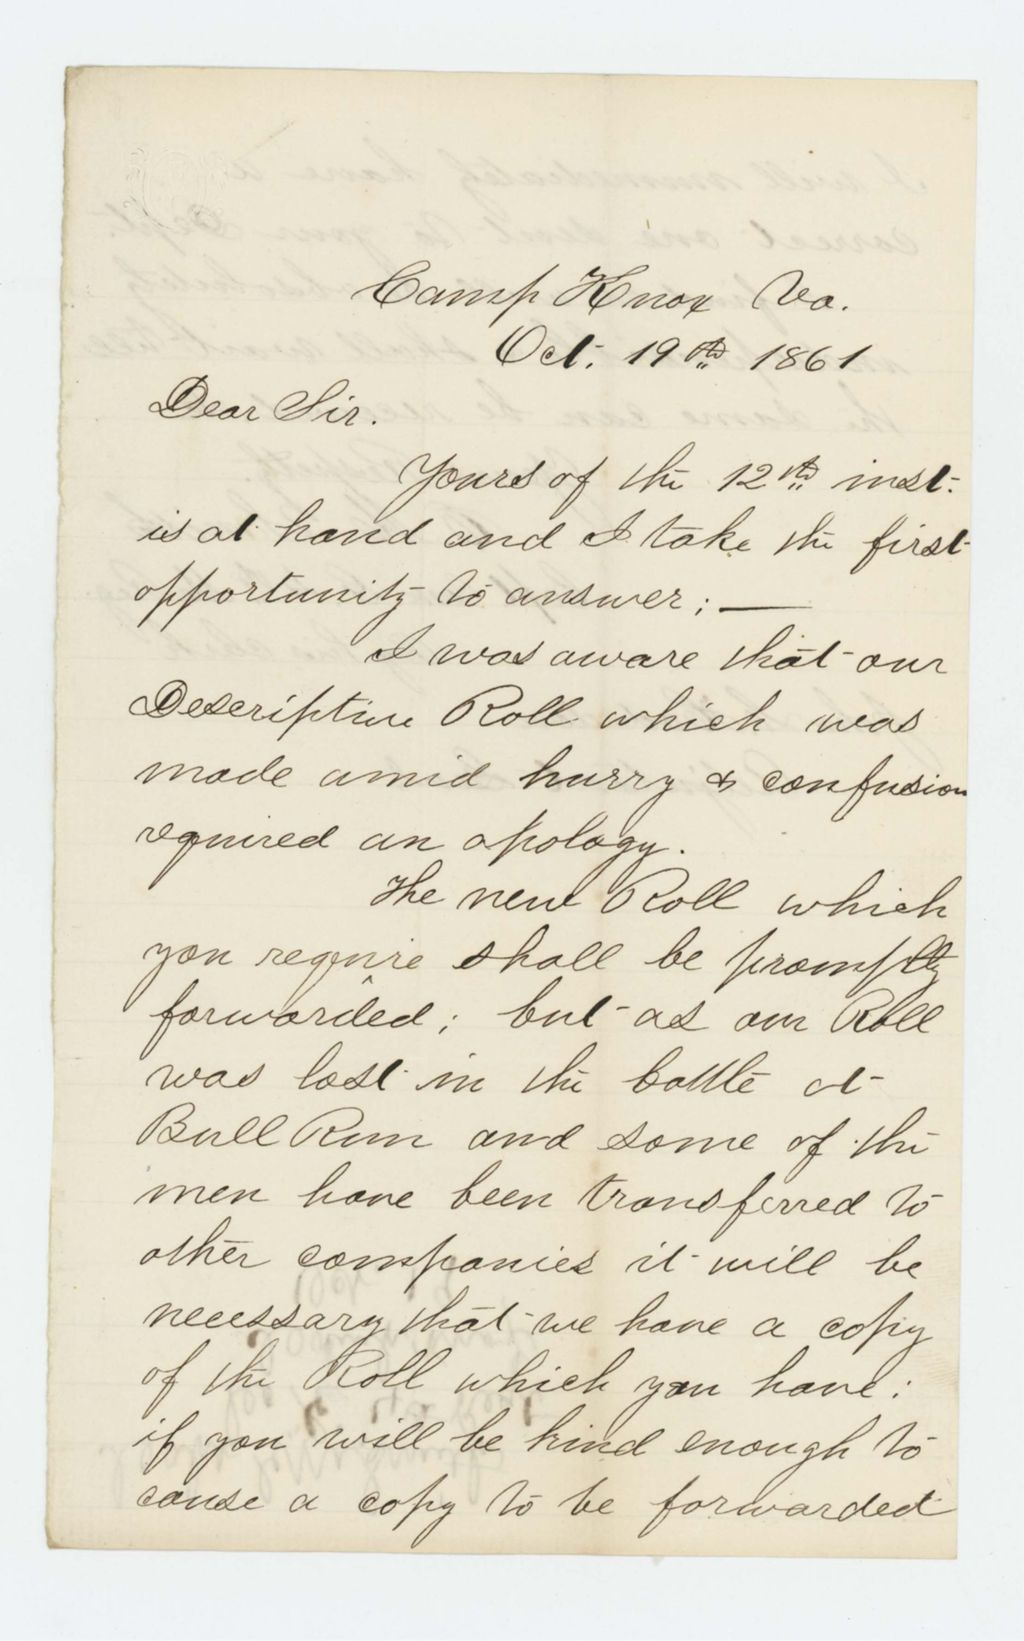 Camp Knox Va.
Oct. 19th 1861
Dear Sir.
Yours of the 12th inst.
is at hand and I take the first
opportunity to answer; —
I was aware that our
Descriptive Roll which was
made amid hurry & confusion
required an apology.
The new Roll which
you require shall be promptly
forwarded; but as our Roll
was lost in the battle at
Bull Run and some of the
men have been transferred to
other companies it will be
necessary that we have a copy
of the Roll which you have;
if you will be kind enough to
cause a copy to be forwarded